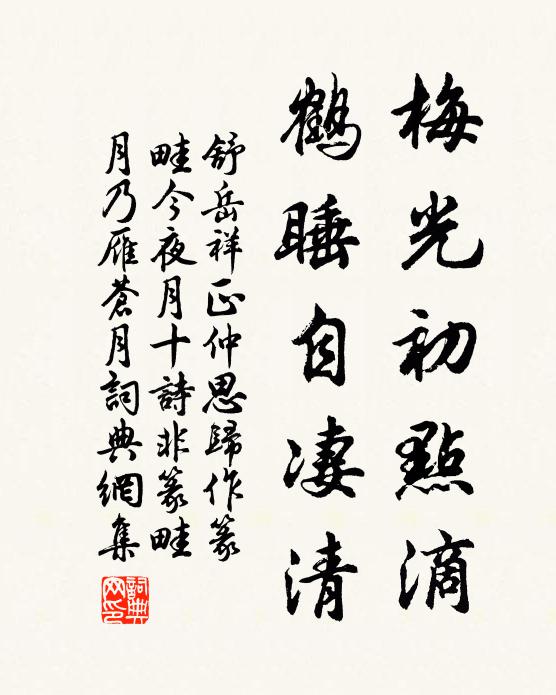 梅光初點滴
鶴睡自凄清
舒岳祥正仲思歸作篆
畦今夜月十詩非篆畦
月乃雁蒼月詞典網集
詞典
网印